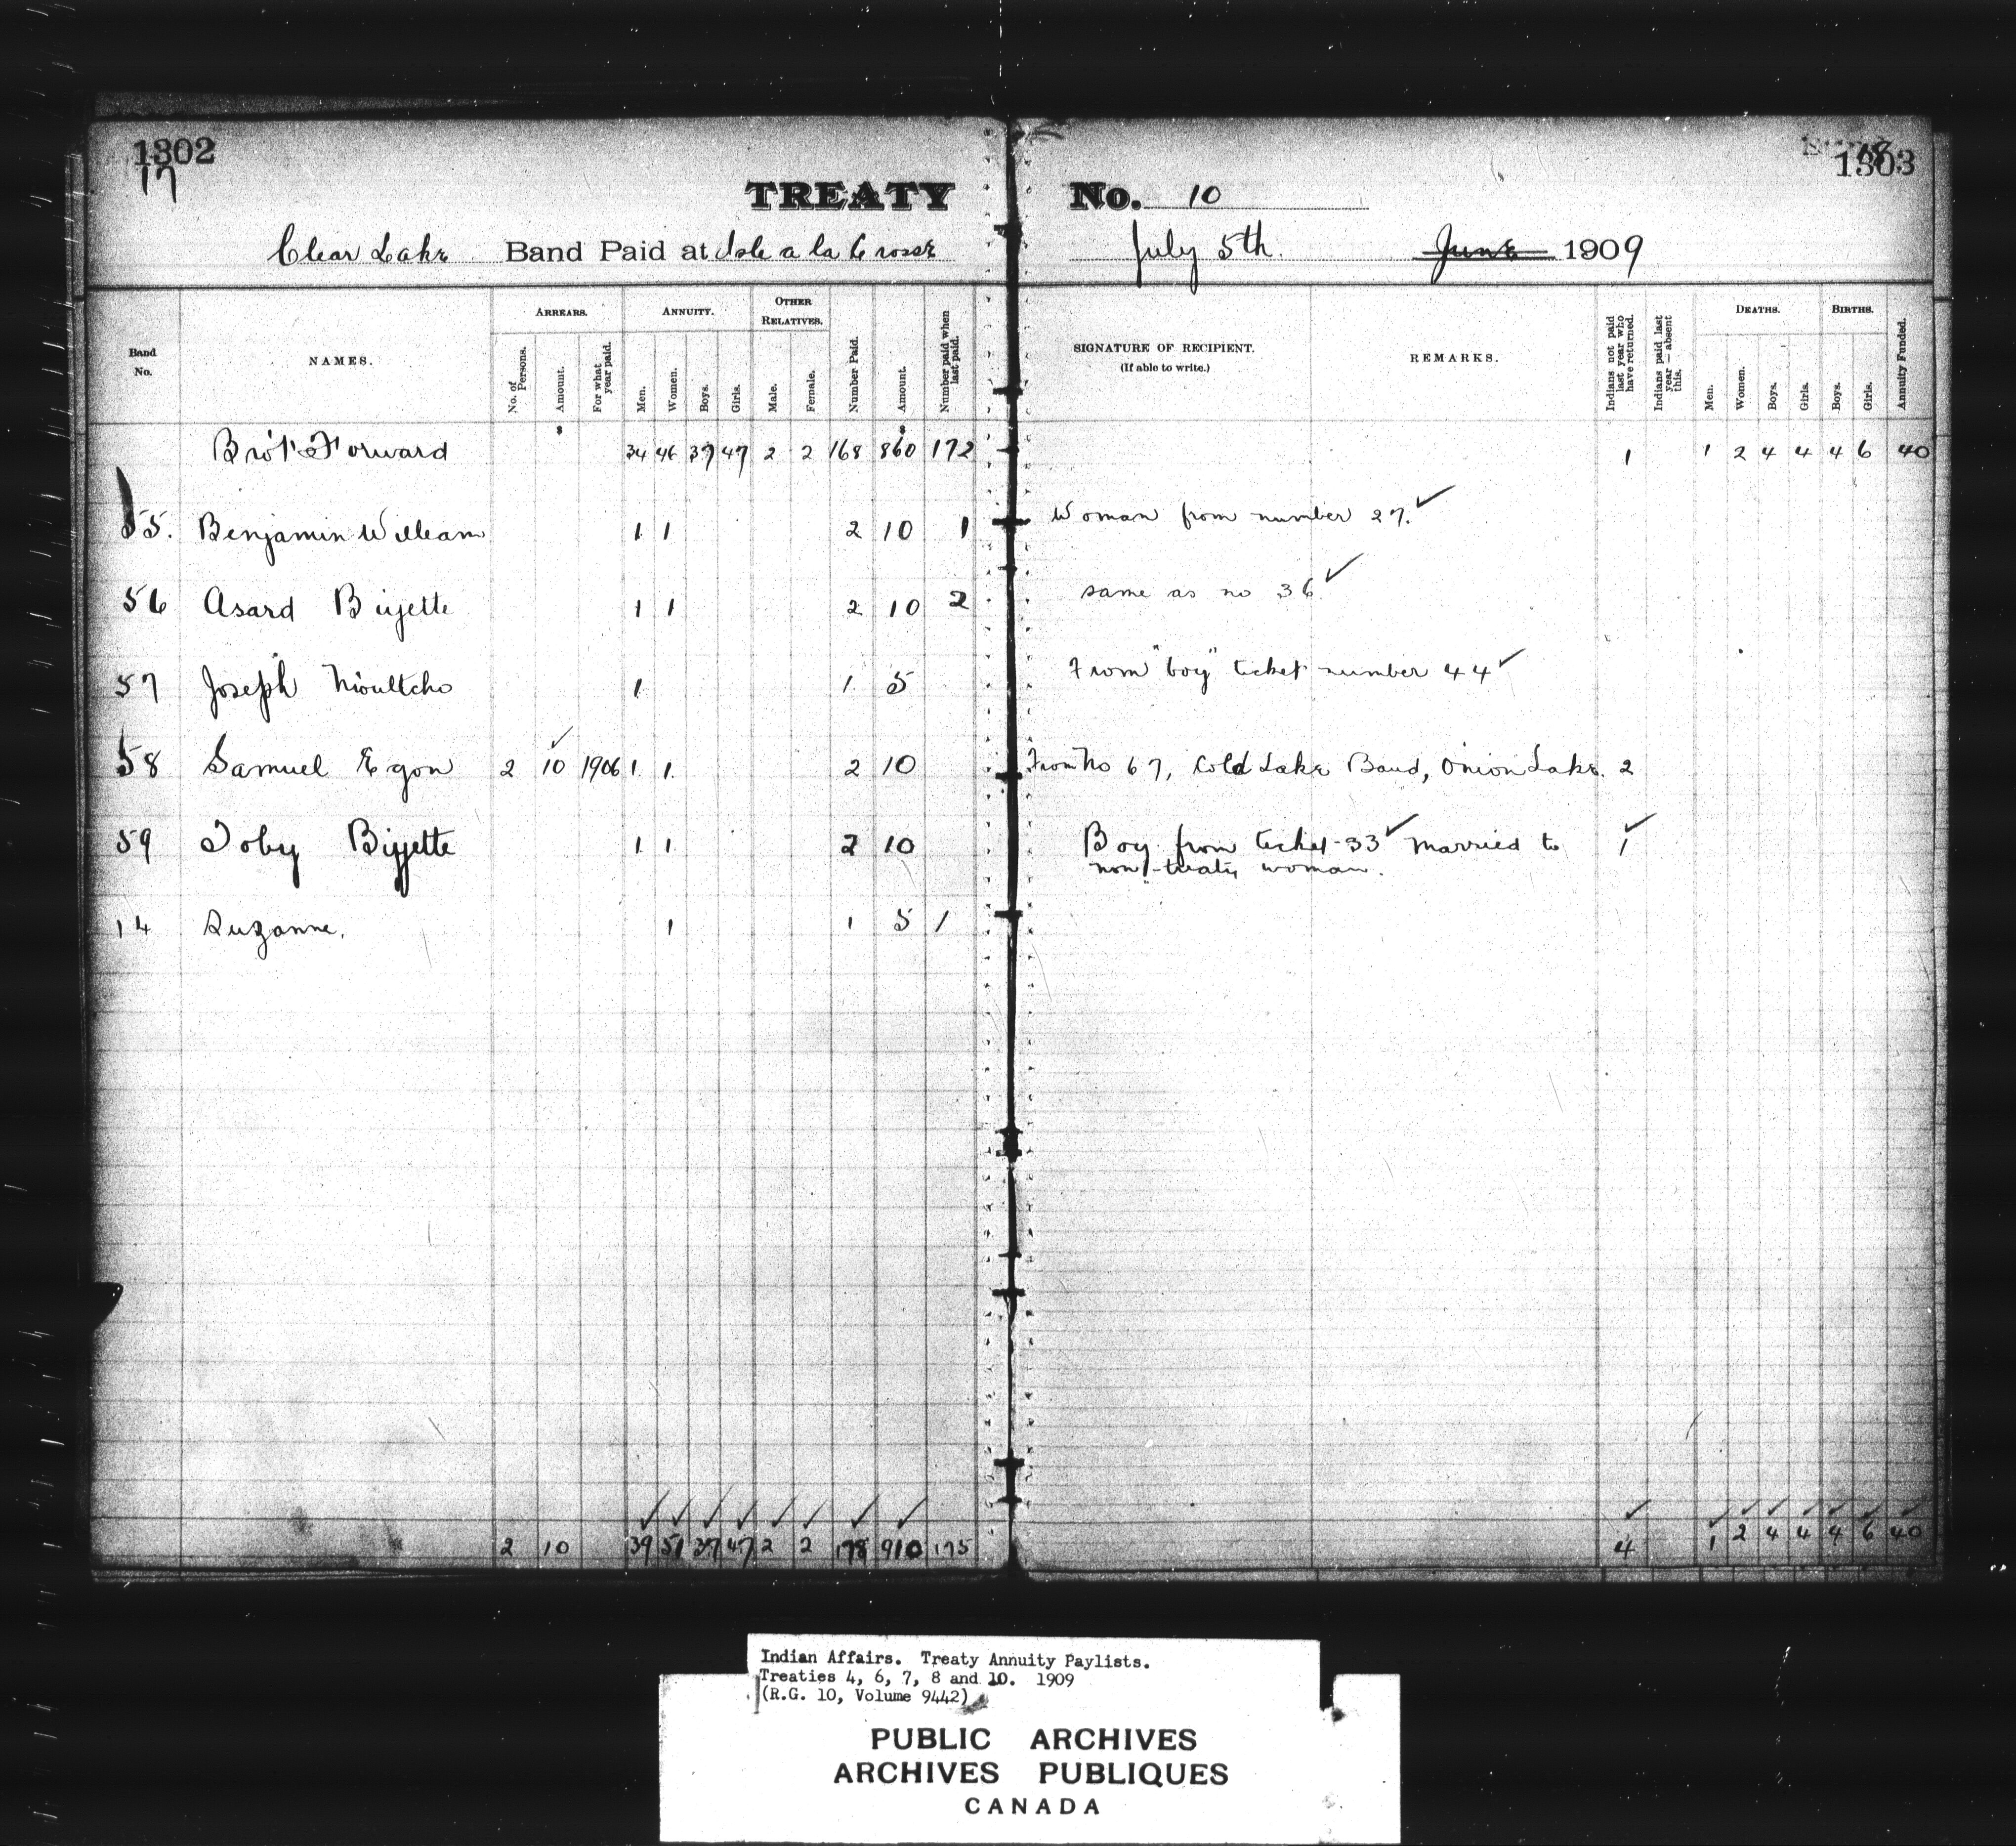 1302
17
TREATY No. 10
1303
18
Clear Lake Band Paid at Isle a la Crosse July 5th. June 1909
Band No. NAMES. ARREARS. No. of Persons. Amount. For what year paid. ANNUITY. Men. Women. Boys. Girls. OTHER RELATIVES. Male. Female. Number Paid. Amount. Number paid when last paid. SIGNATURE OF RECIPIENT. (If able to write.) REMARKS. Indians not paid last year who have returned. Indians paid last year — absent this. DEATHS. Men. Women. Boys. Girls. BIRTHS. Boys. Girls. Annuity Funded.
$ $
Bro't Forward 34 46 37 47 2 2 168 860 172 1 1 2 4 4 4 6 40
55. Benjamin William 1 1 2 10 1 Woman from number 27. ✓
56 Asard Biyette 1 1 2 10 2 same as no 36. ✓
57 Joseph Nioultcho 1 1 5 From "boy" ticket number 44 ✓
58 Samuel Egon 2 10 ✓ 1906 1 1 2 10 From No 67, Cold Lake Band, Onion Lake. 2
59 Toby Biyette 1 1 2 10 Boy from ticket 33 ✓ married to 1 ✓
non-treaty woman.
14 Suzanne. 1 1 5 1
✓ ✓ ✓ ✓ ✓ ✓ ✓ ✓ ✓ ✓ ✓ ✓ ✓ ✓ ✓ ✓
2 10 39 51 37 47 2 2 178 910 175 4 1 2 4 4 4 6 40
Indian Affairs. Treaty Annuity Paylists.
Treaties 4, 6, 7, 8 and 10. 1909
(R.G. 10, Volume 9442)
PUBLIC ARCHIVES
ARCHIVES PUBLIQUES
CANADA